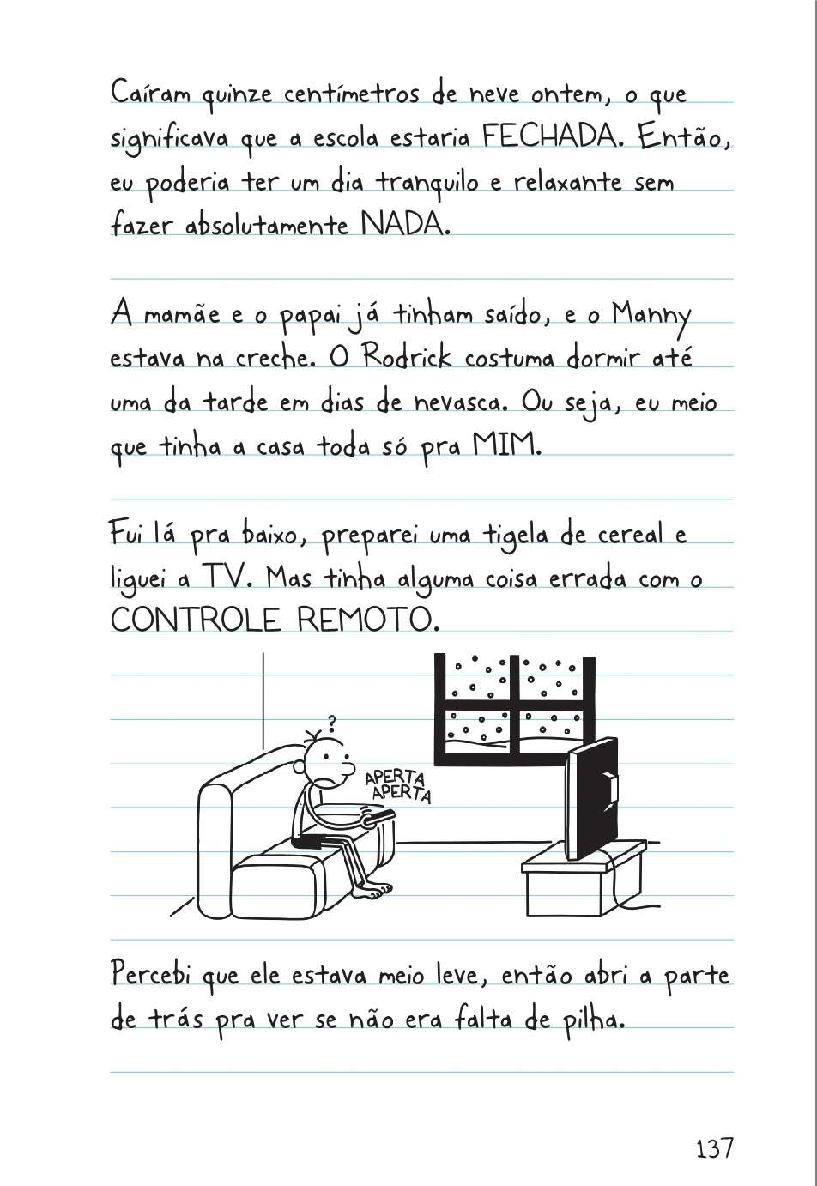 Caíram quinze centímetros de neve ontem, o que
significava que a escola estaria FECHADA. Então,
eu poderia ter um dia tranquilo e relaxante sem
fazer absolutamente NADA.
A mamãe e o papai já tinham saído, e o Manny
estava na creche. O Rodrick costuma dormir até
uma da tarde em dias de nevasca. Ou seja, eu meio
que tinha a casa toda só pra MIM.
Fui lá pra baixo, preparei uma tigela de cereal e
liguei a TV. Mas tinha alguma coisa errada com o
CONTROLE REMOTO.
?
APERTA
APERTA
Percebi que ele estava meio leve, então abri a parte
de trás pra ver se não era falta de pilha.
137